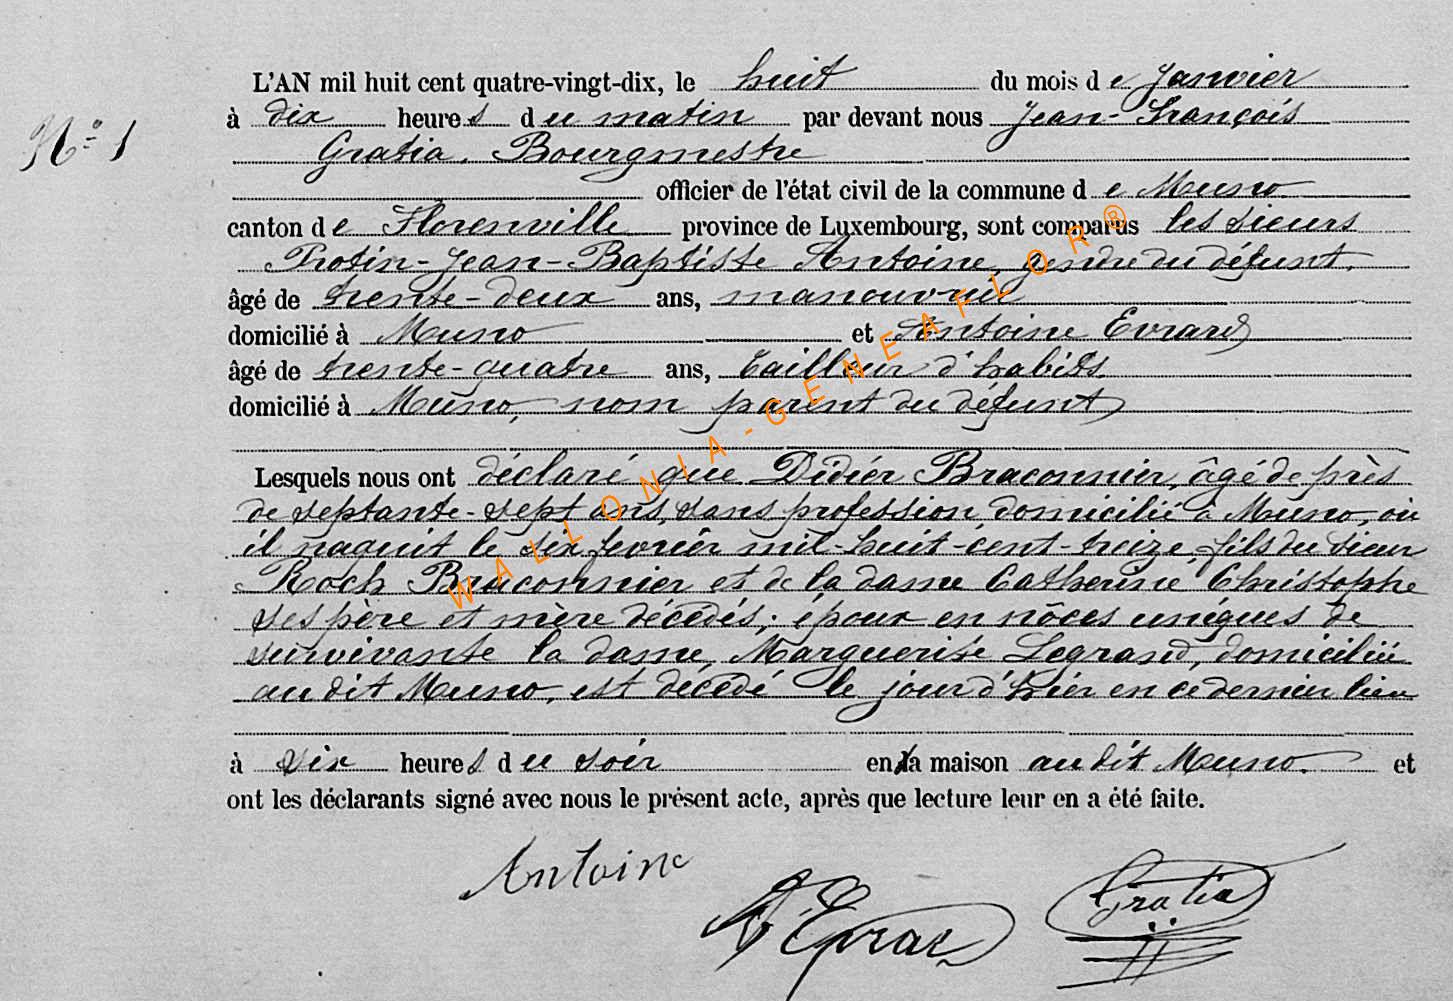 L'AN mil huit cent quatre-vingt-dix, le huit du mois de Janvier
N° 1
à dix heures du matin par devant nous Jean-François
Gratia. Bourgmestre
officier de l'état civil de la commune de Muno
canton de Florenville province de Luxembourg, sont comparus les sieurs
Protin-Jean-Baptiste Antoine, gendre du défunt.
âgé de trente-deux ans, manouvrier
domicilié à Muno et Antoine Evrard
âgé de trente-quatre ans, tailleur d'habits
domicilié à Muno, nom parent du défunt
Lesquels nous ont déclaré que Didiér Braconnier, âgé de près
de septante-sept ans, sans profession, domicilié à Muno, où
il naquit le six fevriér mil-huit-cent-treize, fils du sieur
Roch Braconnier et de la dame Catherine Christophe
ses père et mère décédés; époux en nôces uniques de
survivante la dame, Marguerite Legrand, domiciliée
au dit Muno, est décédé le jour d'hiér en ce dernier lieu
à six heures du soir en la maison au dit Muno. et
ont les déclarants signé avec nous le présent acte, après que lecture leur en a été faite.
Antoine
Gratia
WALLONIA-GENEAFLOR®